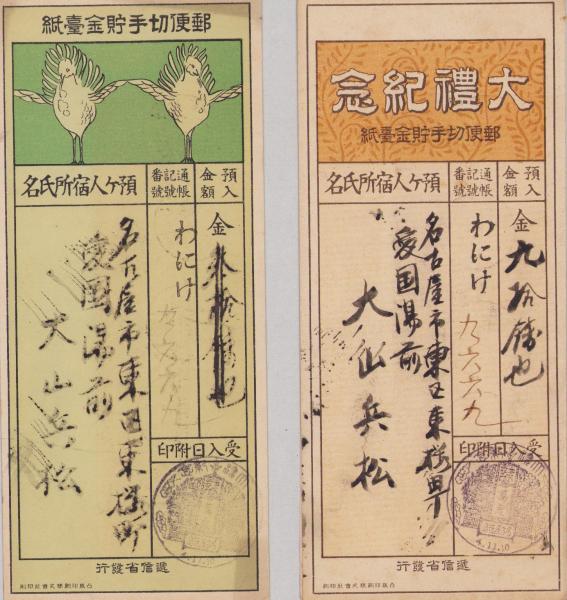 郵便切手貯金臺紙
預入金額
通帳記號番號
預ケ人宿所氏名
金 参拾錢也
わにけ 九六六九
名古屋市東区東桜町
愛国湯前
大山兵松
受入日附印
遞信省發行
凸版印刷株式會社印刷
大禮紀念
郵便切手貯金臺紙
預入金額
通帳記號番號
預ケ人宿所氏名
金 九拾錢也
わにけ 九六六九
名古屋市東区東桜町
愛国湯前
大山兵松
受入日附印
4.11.10
遞信省發行
凸版印刷株式會社印刷